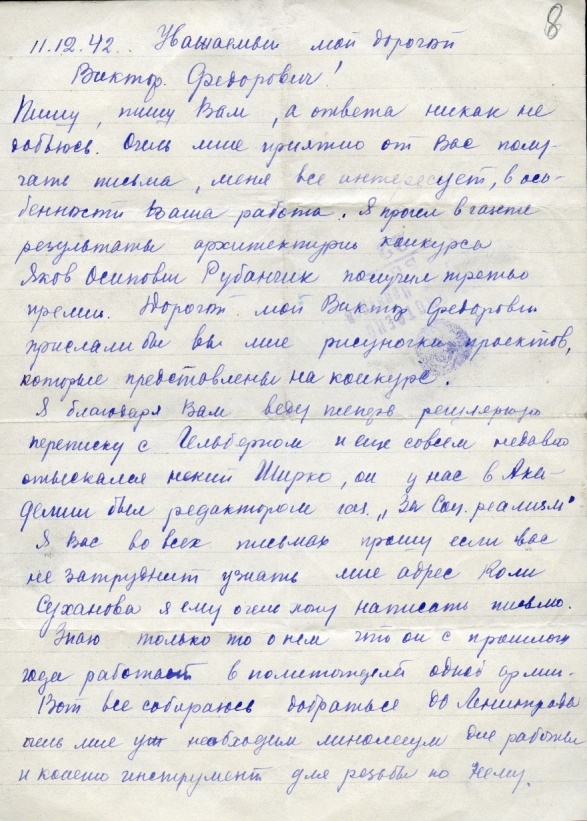 8
11.12.42. Уважаемый мой дорогой
Виктор Федорович!
Пишу, пишу Вам, а ответа никак не
добьюсь. Очень мне приятно от Вас полу-
чать письма, меня все интересует, в осо-
бенности Ваша работа. Я прочел в газете
результаты архитектурн конкурса
Яков Осипович Рубанчик получил третью
премию. Дорогой мой Виктор Федорович
прислали бы вы мне рисуночки проектов,
которые представлены на конкурс.
Я благодаря Вам веду теперь регулярную
переписку с Гельбергом и еще совсем недавно
отыскался некий Ширко, он у нас в Ака-
демии был редактором газ. „За Соц. реализм"
Я Вас во всех письмах прошу если вас
не затруднит узнать мне адрес Коли
Суханова я ему очень хочу написать письмо.
Знаю только то о нем что он с прошлого
года работает в политотделе одной армии.
Вот все собираюсь добраться до Ленинграда
очень мне уж необходим линолеум для работы
и конечно инструмент для резьбы по нему.